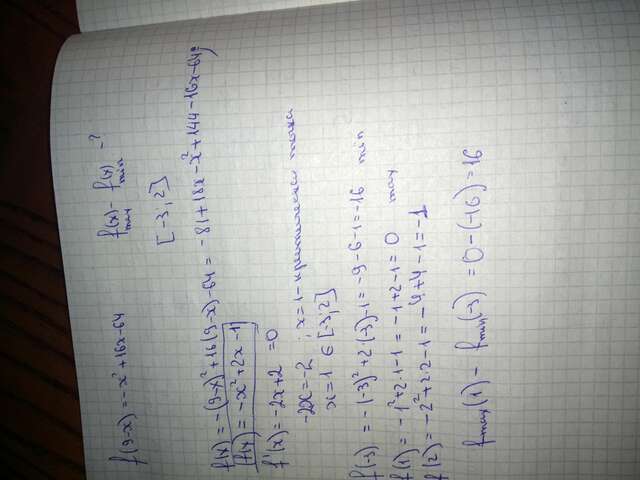 f(9-x) = -x²+16x-64
f(x) max - f(x) min - ?
[-3; 2]
f(x) = -(9-x)²+16(9-x)-64 = -81+18x-x²+144-16x-64=
f(x) = -x²+2x-1
f'(x) = -2x+2 = 0
-2x=-2 ; x=1 - критическая точка
x=1 ∈ [-3; 2]
f(-3) = -(-3)²+2·(-3)-1 = -9-6-1=-16 min
f(1) = -1²+2·1-1 = -1+2-1=0 max
f(2) = -2²+2·2-1 = -4+4-1=-1
fmax(1) - fmin(-3) = 0-(-16) = 16